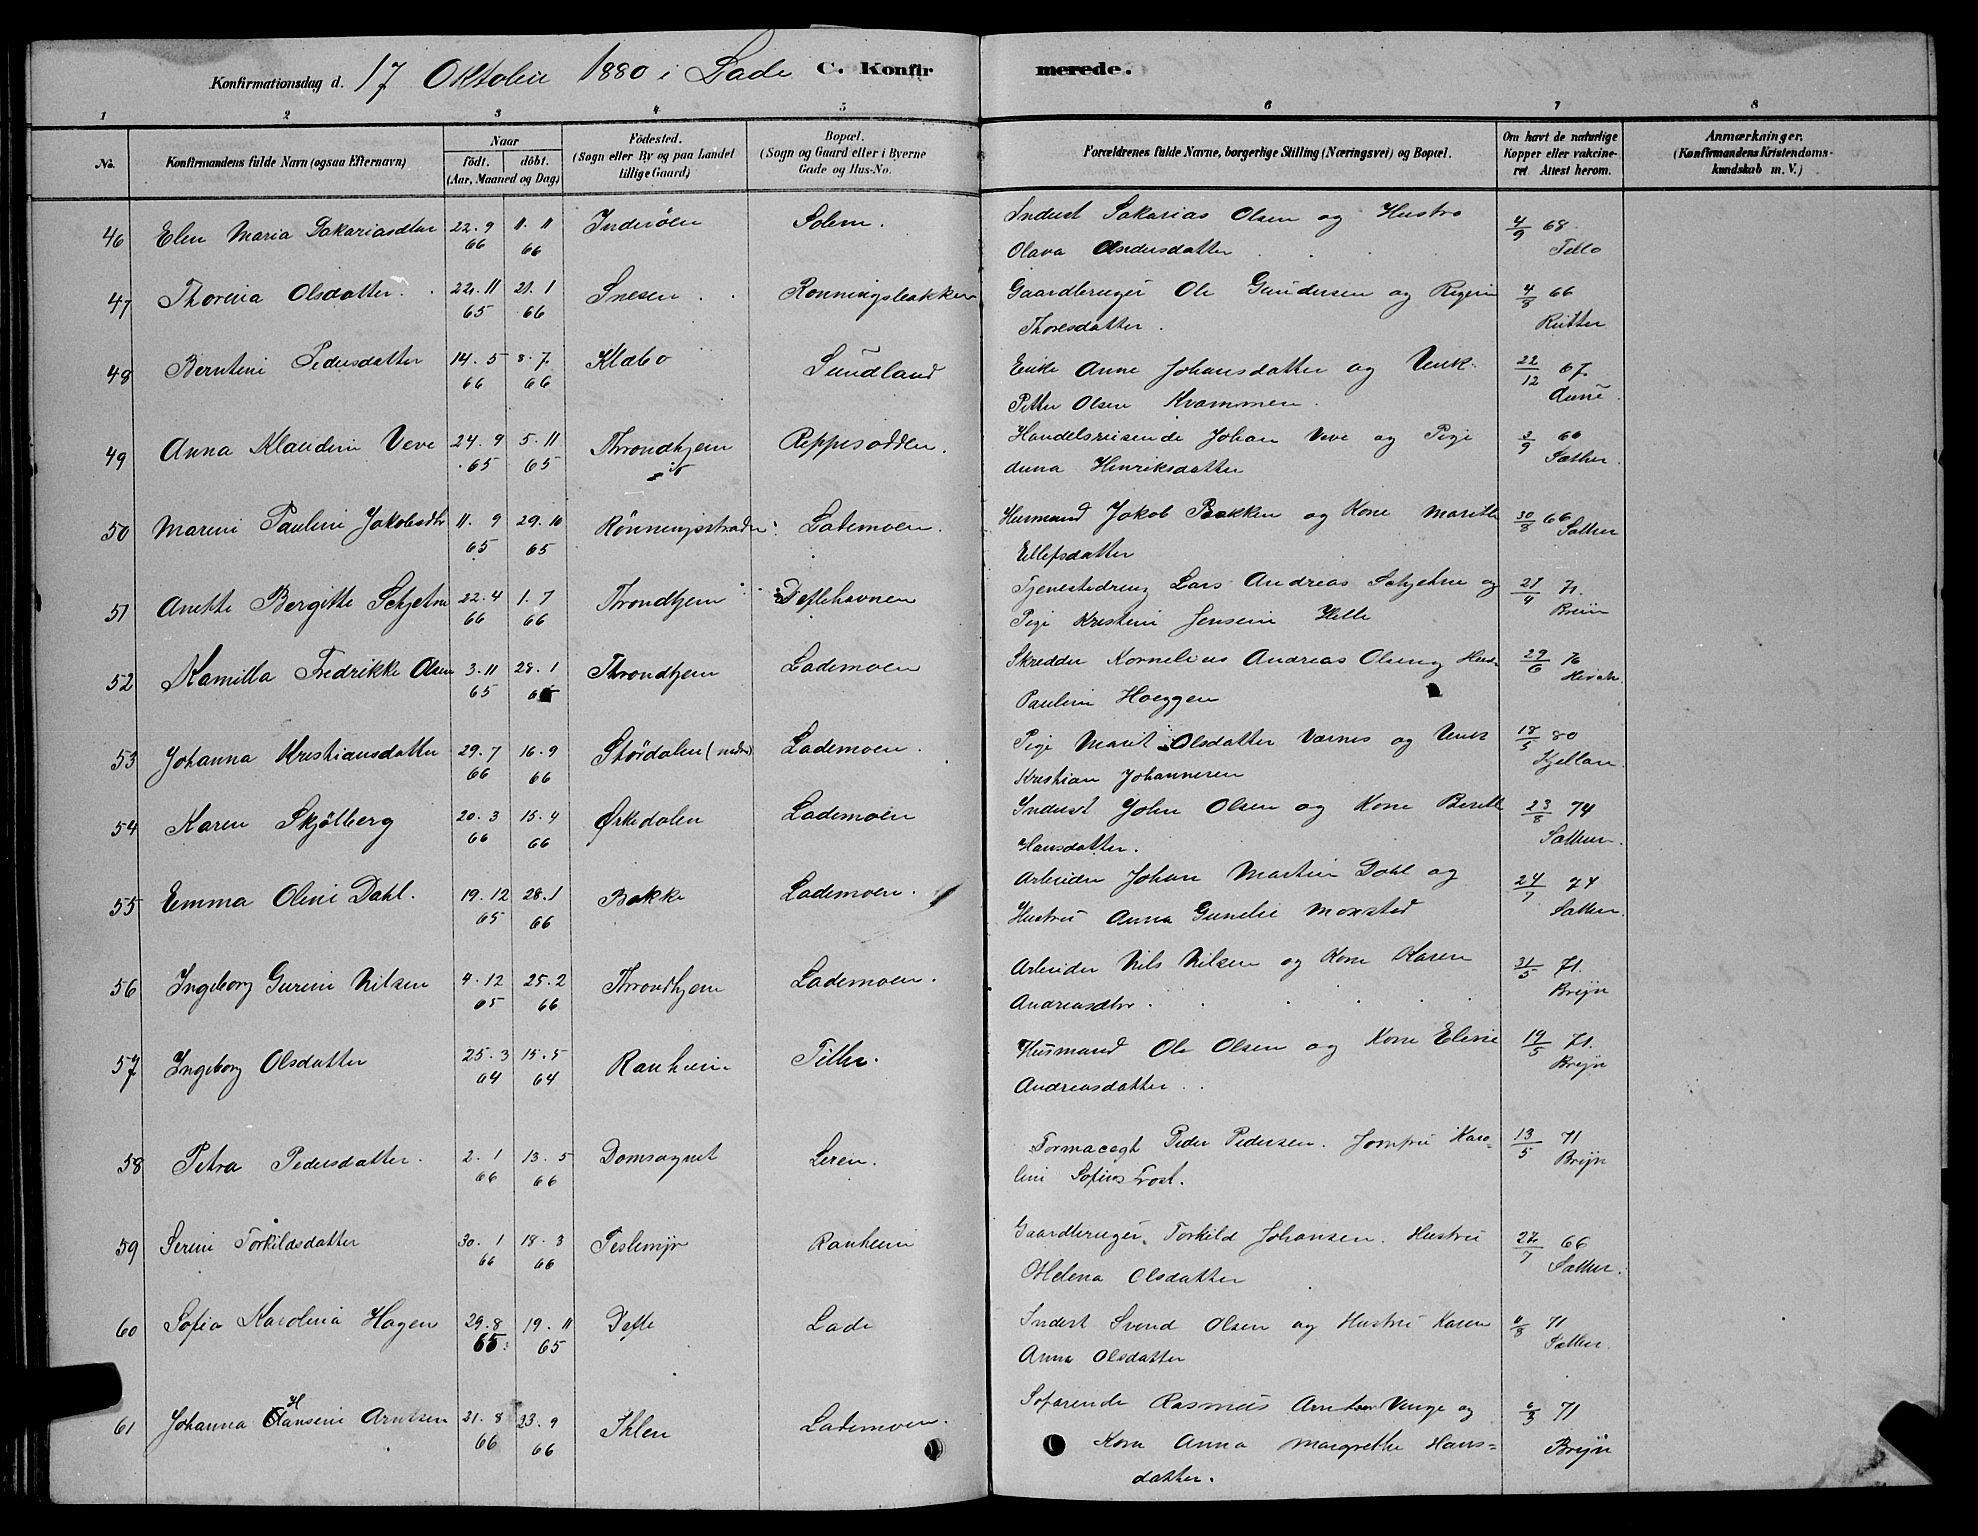 Konfirmationsdag d. 17 Oktober 1880 i Lade C. Konfirmerede.
1 2 3 4 5 6 7 8
No. Konfirmandens fulde Navn (ogsaa Efternavn) Naar födt. döbt. (Aar, Maaned og Dag) Födested. (Sogn eller By og paa Landet tillige Gaard) Bopæl. (Sogn og Gaard eller i Byerne Gade og Hus-No. Forældrenes fulde Navne, borgerlige Stilling (Næringsvei) og Bopæl. Om havt de naturlige Kopper eller vakcineret Attest herom. Anmærkninger. (Konfirmandens Kristendomskundskab m. V.)
46 Elen Maria Sakariasdtter 22.9 66 11.11 66 Inderöen Solem. Inderst Sakarias Olsen og Hustro 4/9 68.
Olava Andersdatter Tello
47 Thorena Olsdatter. 22.11 65 21.1 66 Snesen Ronningsbakken Gaardbruger Ole Gundersen og Regine 4/8 66
Thoresdatter. Rutter
48 Berntine Pedersdatter 14.5 66 8.7. 66 Klæbo Sundland Enke Anne Johansdatter og Unk. 22/12 67.
Petter Olsen Kvammen. Aune
49 Anna Klaudine Veve 24.9 65 5.11 65 Throndhjem Reppesodden. Handelsreisende Johan Veve og Pige 3/9 66
Anna Henriksdatter Sæther.
50 Marine Pauline Jakobsdtr 11.9 65 29.10 65 Rönningsstraden Lademoen. Husmand Jakob Bakken og Kone Marette 30/8 66
Ellefsdatter Sæther
51 Anette Bergitte Schjetne 22.4 66 1.7 66 Throndhjem Deflehavnen Tjenestedreng Lars Andreas Schjetne og 21/4 71.
Pige Kristine Jensine Helle Breün
52 Kamilla Fredrikke Olsen 3.11 65 28.1 Throndhjem Lademoen Skredder Kornelius Andreas Olsen og Hus. 29/6 76
Pauline Hoeggen
53 Johanna Kristiansdatter 29.7 66 16.9 66 Stördalen (nedre) Lademoen. Pige Marit Olsdatter Værnes og Unk 18/5 80
Kristian Johannesen Kjellan.
54 Karen Skjölberg 20.3 66 15.4 66 Ørkedalen Lademoen Inderst John Olsen og Kone Berette 23/8 74
Hansdatter. Sæther.
55 Emma Oline Dahl. 19.12 65 28.1 66 Bakke Lademoen. Arbeider Johan Martin Dahl og 24/7 74
Hustru Anna Gunelie Moxsted Sæther.
56 Ingeborg Gurine Nilsen 4.12 65 25.2 66 Throndhjem Lademoen. Arbeider Nils Nilsen og Kone Karen 31/5 71.
Andreasdtr. Breÿn
57 Ingeborg Olsdatter 25.3 64 15.5 64 Ranheim Tiller. Husmand Ole Olsen og Kone Eline 19/5 71.
Andreasdatter. Breÿn
58 Petra Pedersdatter. 2.1 66 13.5 66 Domsognet Leren. Formacogt Peder Pedersen. Jomfru Karo- 13/5 71
line Sofines Trost. Breÿn
59 Serine Torkildsdatter 30.1 66 18.3 66 Teslimÿr Ranheim Gaardbruger Torkild Johansen. Hustru 27/7 66
Helena Olsdatter Sæther.
60 Sofia Karolina Hagen 29.8 65. 19.11 65 Defle Lade Inderst Svend Olsen og Hustru Karen 11/8 71
Anna Olsdatter Sæther.
61 Johanna Hansine Arntsen 21.8 66 23.9 66 Ihlen Lademoen. Sofarende Rasmus Arntsen Vinge og 6/3 71
Kona Anna Margrethe Hans- Breÿn
datter.